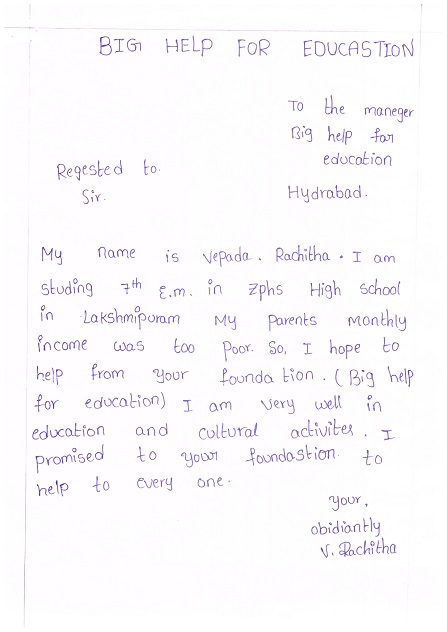 BIG HELP FOR EDUCASTION
To the maneger
Big help for
education
Regested to.
Sir.
Hydrabad.
My name is vepada. Rachitha. I am
studing 7th E.m. in zphs High school
in Lakshmipuram My Parents monthly
income was too Poor. So, I hope to
help from your founda tion. (Big help
for education) I am very well in
education and cultural activites. I
promised to your foundastion. to
help to every one.
your,
obidiantly
V. Rachitha